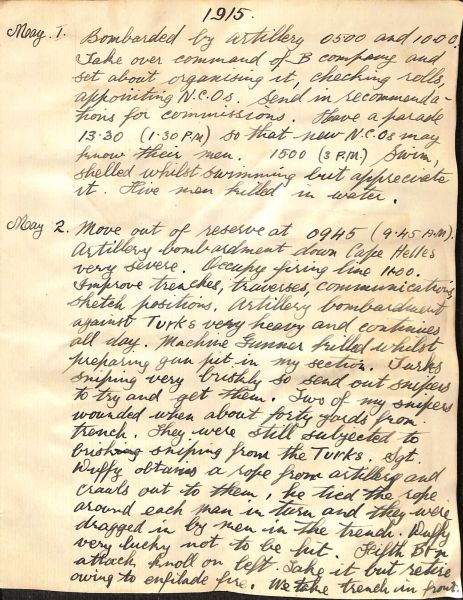 1915.
May. 1. Bombarded by artillery 0500 and 1000.
Take over command of B company and
set about organising it, checking rolls,
appointing N.C.Os. Send in recommenda-
tions for commissions. Have a parade
13.30 (1.30 P.M) so that new N.C.Os may
know their men. 1500 (3 P.M.) Swim,
shelled whilst swimming but appreciate
it. Five men killed in water.
May 2. Move out of reserve at 0945 (9.45 A.M).
Artillery bombardment down Cape Helles
very severe. Occupy firing line 1100.
Improve trenches, traverses, communications,
sketch positions. Artillery bombardment
against Turks very heavy and continues
all day. Machine Gunner killed whilst
preparing gun pit in my section. Turks
sniping very briskly so send out snipers
to try and get them. Two of my snipers
wounded when about forty yards from
trench. They were still subjected to
brisk sniping from the Turks. Sgt.
Duffy obtains a rope from artillery and
crawls out to them, he tied the rope
around each man in turn and they were
dragged in by men in the trench. Duffy
very lucky not to be hit. Fifth Btn
attack knoll on left. Take it but retire
owing to enfilade fire. We take trench in front.